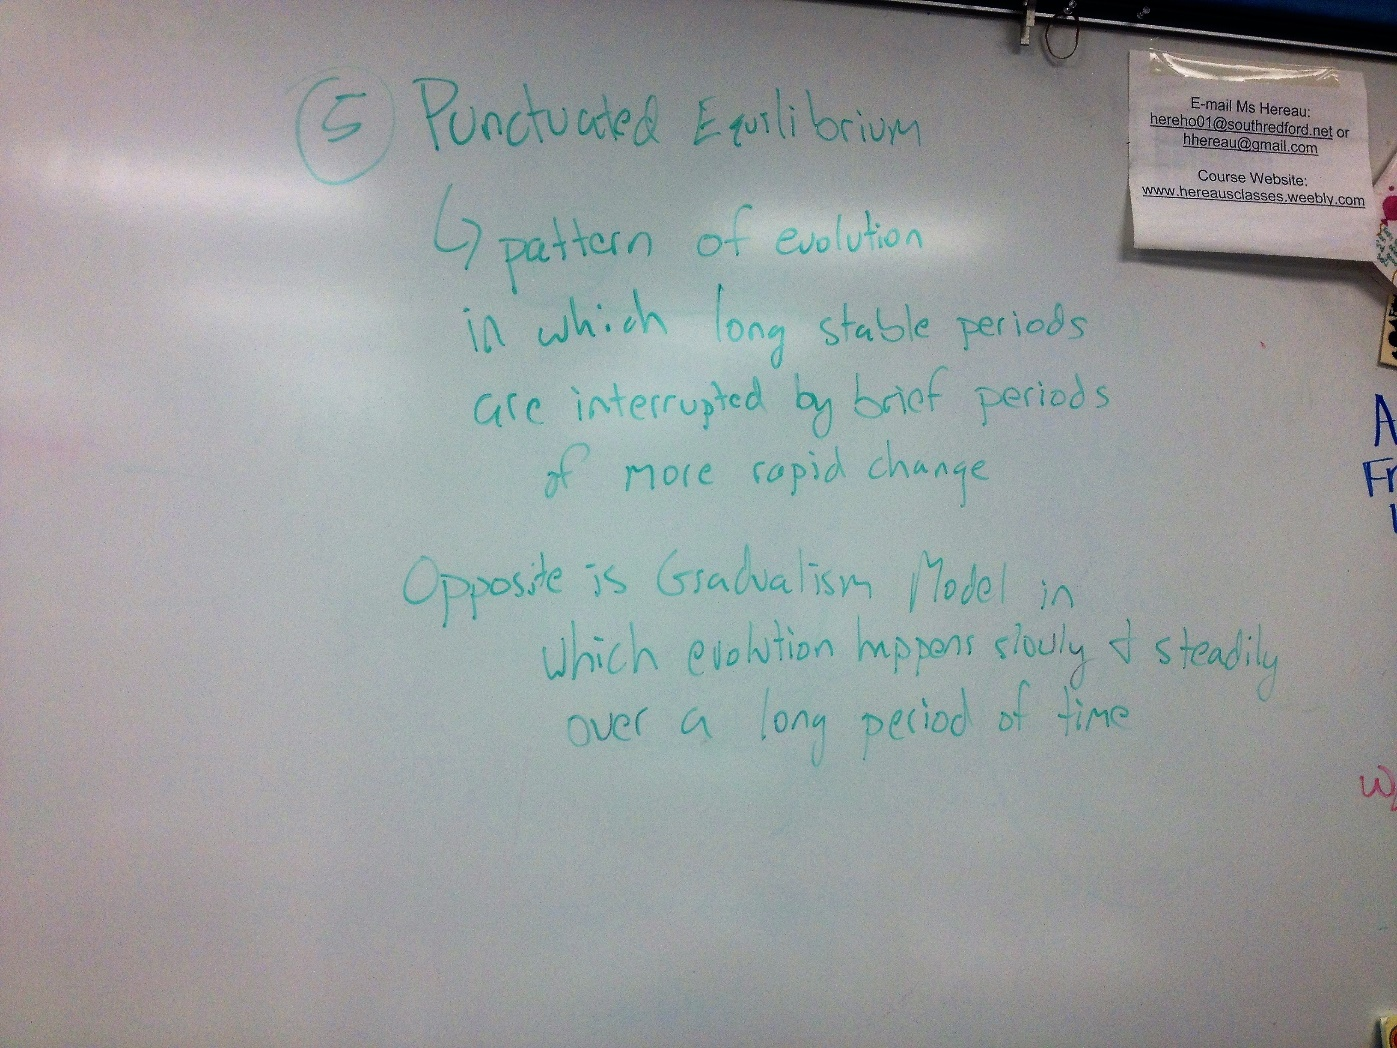 5 Punctuated Equilibrium
↳ pattern of evolution
in which long stable periods
are interrupted by brief periods
of more rapid change
Opposite is Gradualism Model in
which evolution happens slowly & steadily
over a long period of time
E-mail Ms Hereau:
hereho01@southredford.net or
hhereau@gmail.com
Course Website:
www.hereausclasses.weebly.com
A
Fr
W